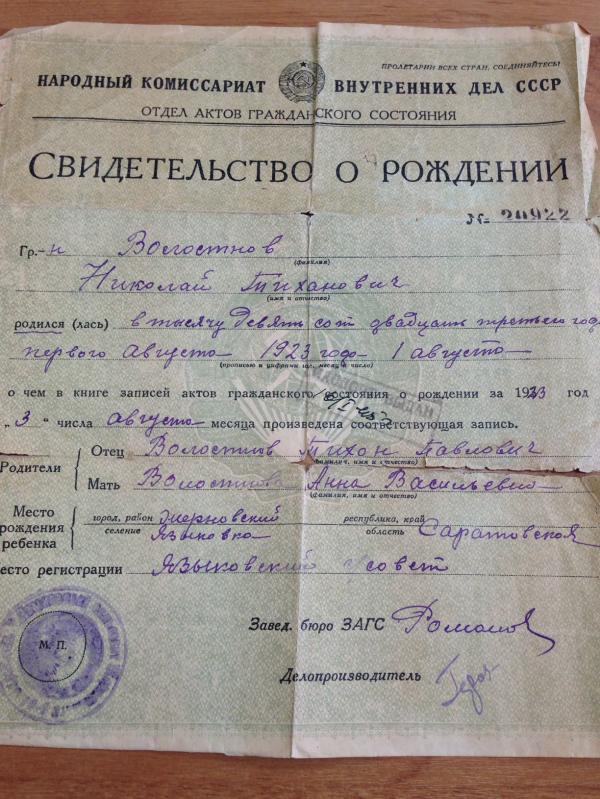 ПРОЛЕТАРИИ ВСЕХ СТРАН, СОЕДИНЯЙТЕСЬ!
НАРОДНЫЙ КОМИССАРИАТ ВНУТРЕННИХ ДЕЛ СССР
ОТДЕЛ АКТОВ ГРАЖДАНСКОГО СОСТОЯНИЯ
СВИДЕТЕЛЬСТВО О РОЖДЕНИИ
№ 20922
Гр.-н Волостнов
(фамилия)
Николай Тиханович
(имя и отчество)
родился (лась) в тысячу девять сот двадцать третьего год
первого августа 1923 года 1 августа
(прописью и цифрами год, месяц и число)
о чем в книге записей актов гражданского состояния о рождении за 1923 год
„3" числа августа месяца произведена соответствующая запись.
Отец Волостнов Тихон Павлович
(фамилия, имя и отчество)
Родители
Мать Волостнова Анна Васильевна
(фамилия, имя и отчество)
Место рождения ребенка
город, район республика, край
селение Языковка область Саратовская
место регистрации Языковский с/совет
М. П.
Завед. бюро ЗАГС Романов
Делопроизводитель